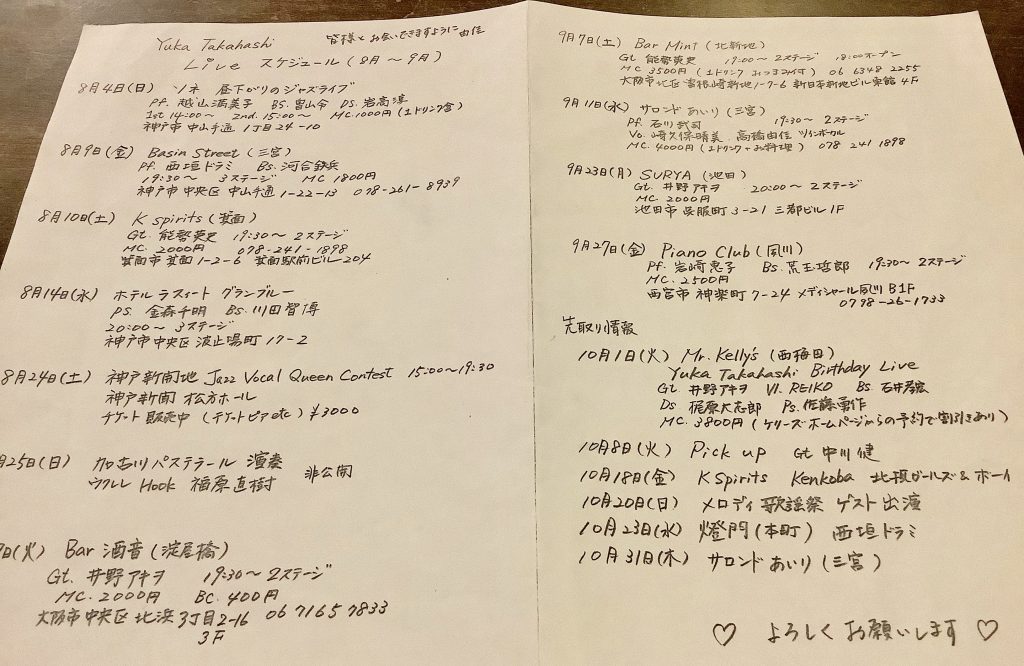 Yuka Takahashi
皆様とお会いできますように 由佳
Live スケジュール (8月～9月)
8月4日(日) ソネ 昼下がりのジャズライブ
Pf. 越山満美子 Bs. 畠山令 Ds. 岩高淳
1st 14:00～ 2nd. 15:00～ MC.1000円(1ドリンク含)
神戸市 中山手通 1丁目24-10
8月9日(金) Basin Street (三宮)
Pf. 西垣ドラミ Bs. 河合鉄兵
19:30～ 3ステージ MC 1800円
神戸市 中央区 中山手通 1-22-13 078-261-8939
8月10日(土) K spirits (箕面)
Gt. 能勢英史 19:30～ 2ステージ
MC. 2000円 078-241-1898
箕面市 箕面1-2-6 箕面駅前ビル204
8月14日(水) ホテル ラスイート グランブルー
Ps. 金森千明 Bs. 川田智博
20:00～ 3ステージ
神戸市 中央区 波止場町 17-2
8月24日(土) 神戸新開地 Jazz Vocal Queen Contest 15:00～19:30
神戸新聞 松方ホール
チケット 販売中 (チケットピアetc) ¥3000
月25日(日) 加古川パステラール 演奏 非公開
ウクレレ Hook 福原直樹
日(火) Bar 酒音 (淀屋橋)
Gt. 井野アキヲ 19:30～ 2ステージ
MC. 2000円 BC. 400円
大阪市 中央区 北浜 3丁目2-16 06 7165 7833
3F
9月7日(土) Bar Mint (北新地)
Gt 能勢英史 19:00～ 2ステージ 18:00オープン
MC 3500円 (1ドリンク おつまみ付) 06 6348 2255
大阪市 北区 曽根崎新地1-7-6 新日本新地ビル東館 4F
9月11日(水) サロンド あいり (三宮)
Pf. 石川武司 19:30～ 2ステージ
Vo. 崎久保晴美 高橋由佳 ツインボーカル
MC. 4000円 (1ドリンク+お料理) 078 241 1898
9月23日(月) SURYA (池田)
Gt. 井野アキヲ 20:00～ 2ステージ
MC. 2000円
池田市 呉服町 3-21 三都ビル 1F
9月27日(金) Piano Club (夙川)
Pf. 岩崎恵子 Bs. 荒玉哲郎 19:30～ 2ステージ
MC. 2500円
西宮市 神楽町 7-24 メディシャール夙川 B1F
0798-26-1733
先取り情報
10月1日(火) Mr. Kelly's (西梅田)
Yuka Takahashi Birthday Live
Gt 井野アキヲ Vl. REIKO Bs 石井孝宏
Ds 梶原大志郎 Ps. 佐藤勇作
MC. 3800円 (ケリーズ ホームページからの予約で割引きあり)
10月8日(火) Pick up Gt 中川健
10月18日(金) K Spirits Kenkoba 北摂ガールズ&ボーイ
10月20日(日) メロディ 歌謡祭 ゲスト出演
10月23日(水) 燈門 (本町) 西垣ドラミ
10月31日(木) サロンド あいり (三宮)
♡ よろしく お願いします ♡